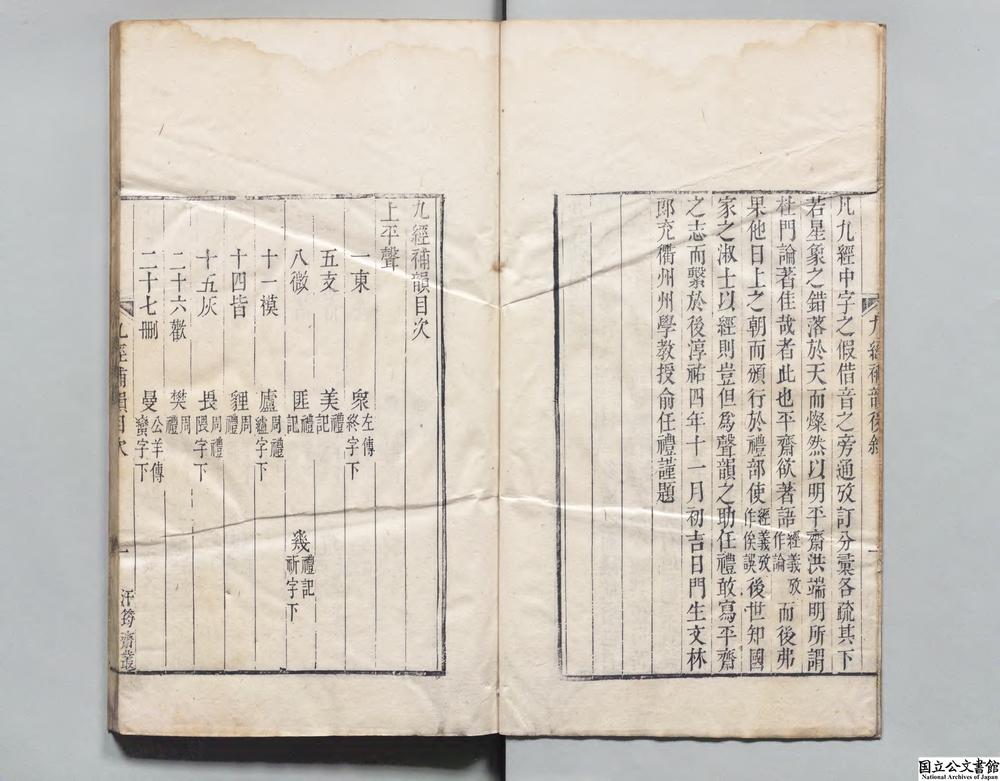 凡九經中字之假借音之旁通攷訂分彚各疏其下
若星象之錯落於天而燦然以明平齋洪端明所謂
杜門論著佳哉者此也平齋欲著語經義攷作論而後弗
果他日上之朝而頒行於禮部使經義攷作俟誤後世知國
家之淑士以經則豈但爲聲韻之助任禮敢寫平齋
之志而繫於後淳祐四年十一月初吉日門生文林
郎充衢州州學教授俞任禮謹題
九經補韻後敘
一
九經補韻目次
上平聲
一東 衆左傳終字下
五支 美禮記
八微 匪禮記 幾禮記祈字下
十一模 廬周禮纑字下
十四皆 貍周禮
十五灰 畏周禮隈字下
二十六歡 樊周禮
二十七刪 曼公羊傳蠻字下
九經補韻目次
一
汗筠齋叢
国立公文書館
National Archives of Japan